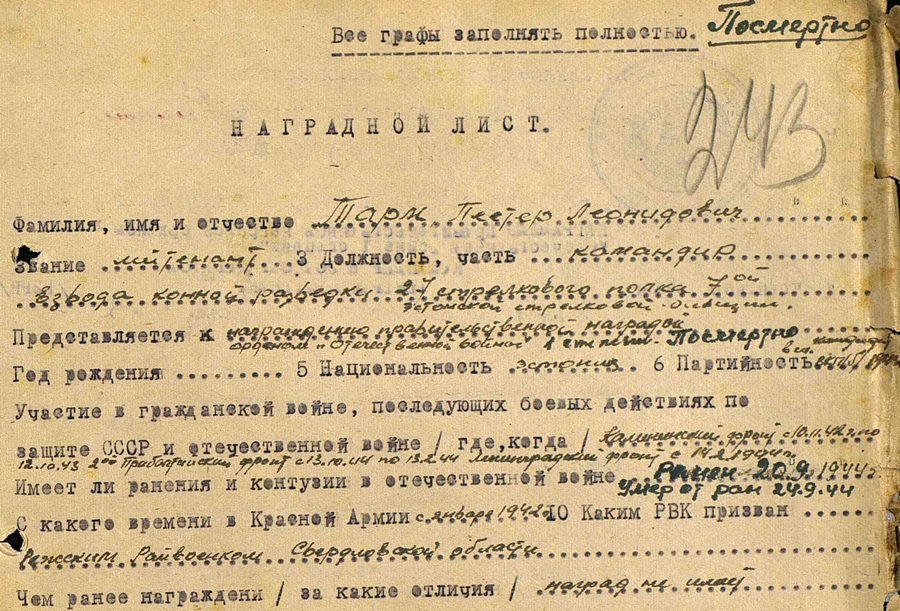 Все графы заполнять полностью. Посмертно
243
НАГРАДНОЙ ЛИСТ.
Фамилия, имя и отчество Тарм Пеетер Леонидович
Звание лейтенант 3 Должность, часть командир
взвода конной разведки 27 стрелкового полка 7ой
эстонской стрелковой дивизии.
Представляется к награждению правительственной наградой
орденом "Отечественной войны" 1 степени. Посмертно
Год рождения ......... 5 Национальность эстонец .. 6 Партийность кандидат
Участие в гражданской войне, последующих боевых действиях по
защите СССР и отечественной войне / где, когда / Калининский фронт с 10.11.42г. по
12.10.43 2ой Прибалтийский фронт с 13.10.44 по 13.2.44 Ленинградский фронт с 14.2.1944г.
Имеет ли ранения и контузии в отечественной войне Ранен 20.9.1944г.
Умер от ран 24.9.44
С какого времени в Красной Армии с января 1942 10 Каким РВК призван ......
Райвоенком Свердловской области
Чем ранее награждени / за какие отличия / наград не имеет